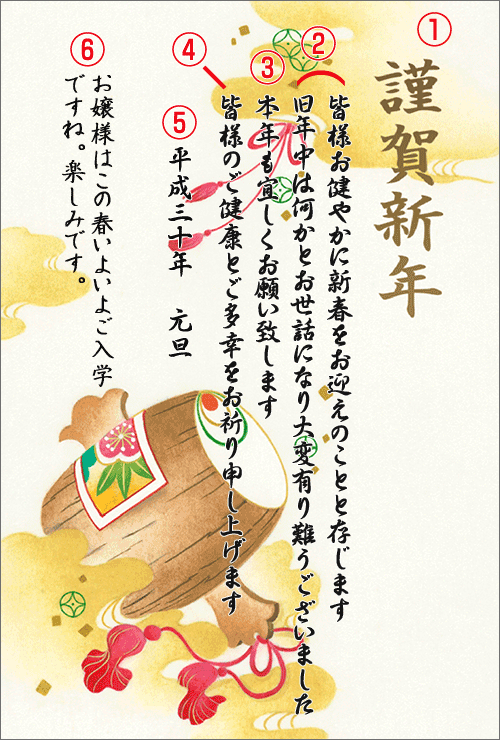 ①
謹賀新年
②
皆様お健やかに新春をお迎えのことと存じます
旧年中は何かとお世話になり大変有り難うございました
③
本年も宜しくお願い致します
④
皆様のご健康とご多幸をお祈り申し上げます
⑤
平成三十年　元旦
⑥
お嬢様はこの春いよいよご入学
ですね。楽しみです。